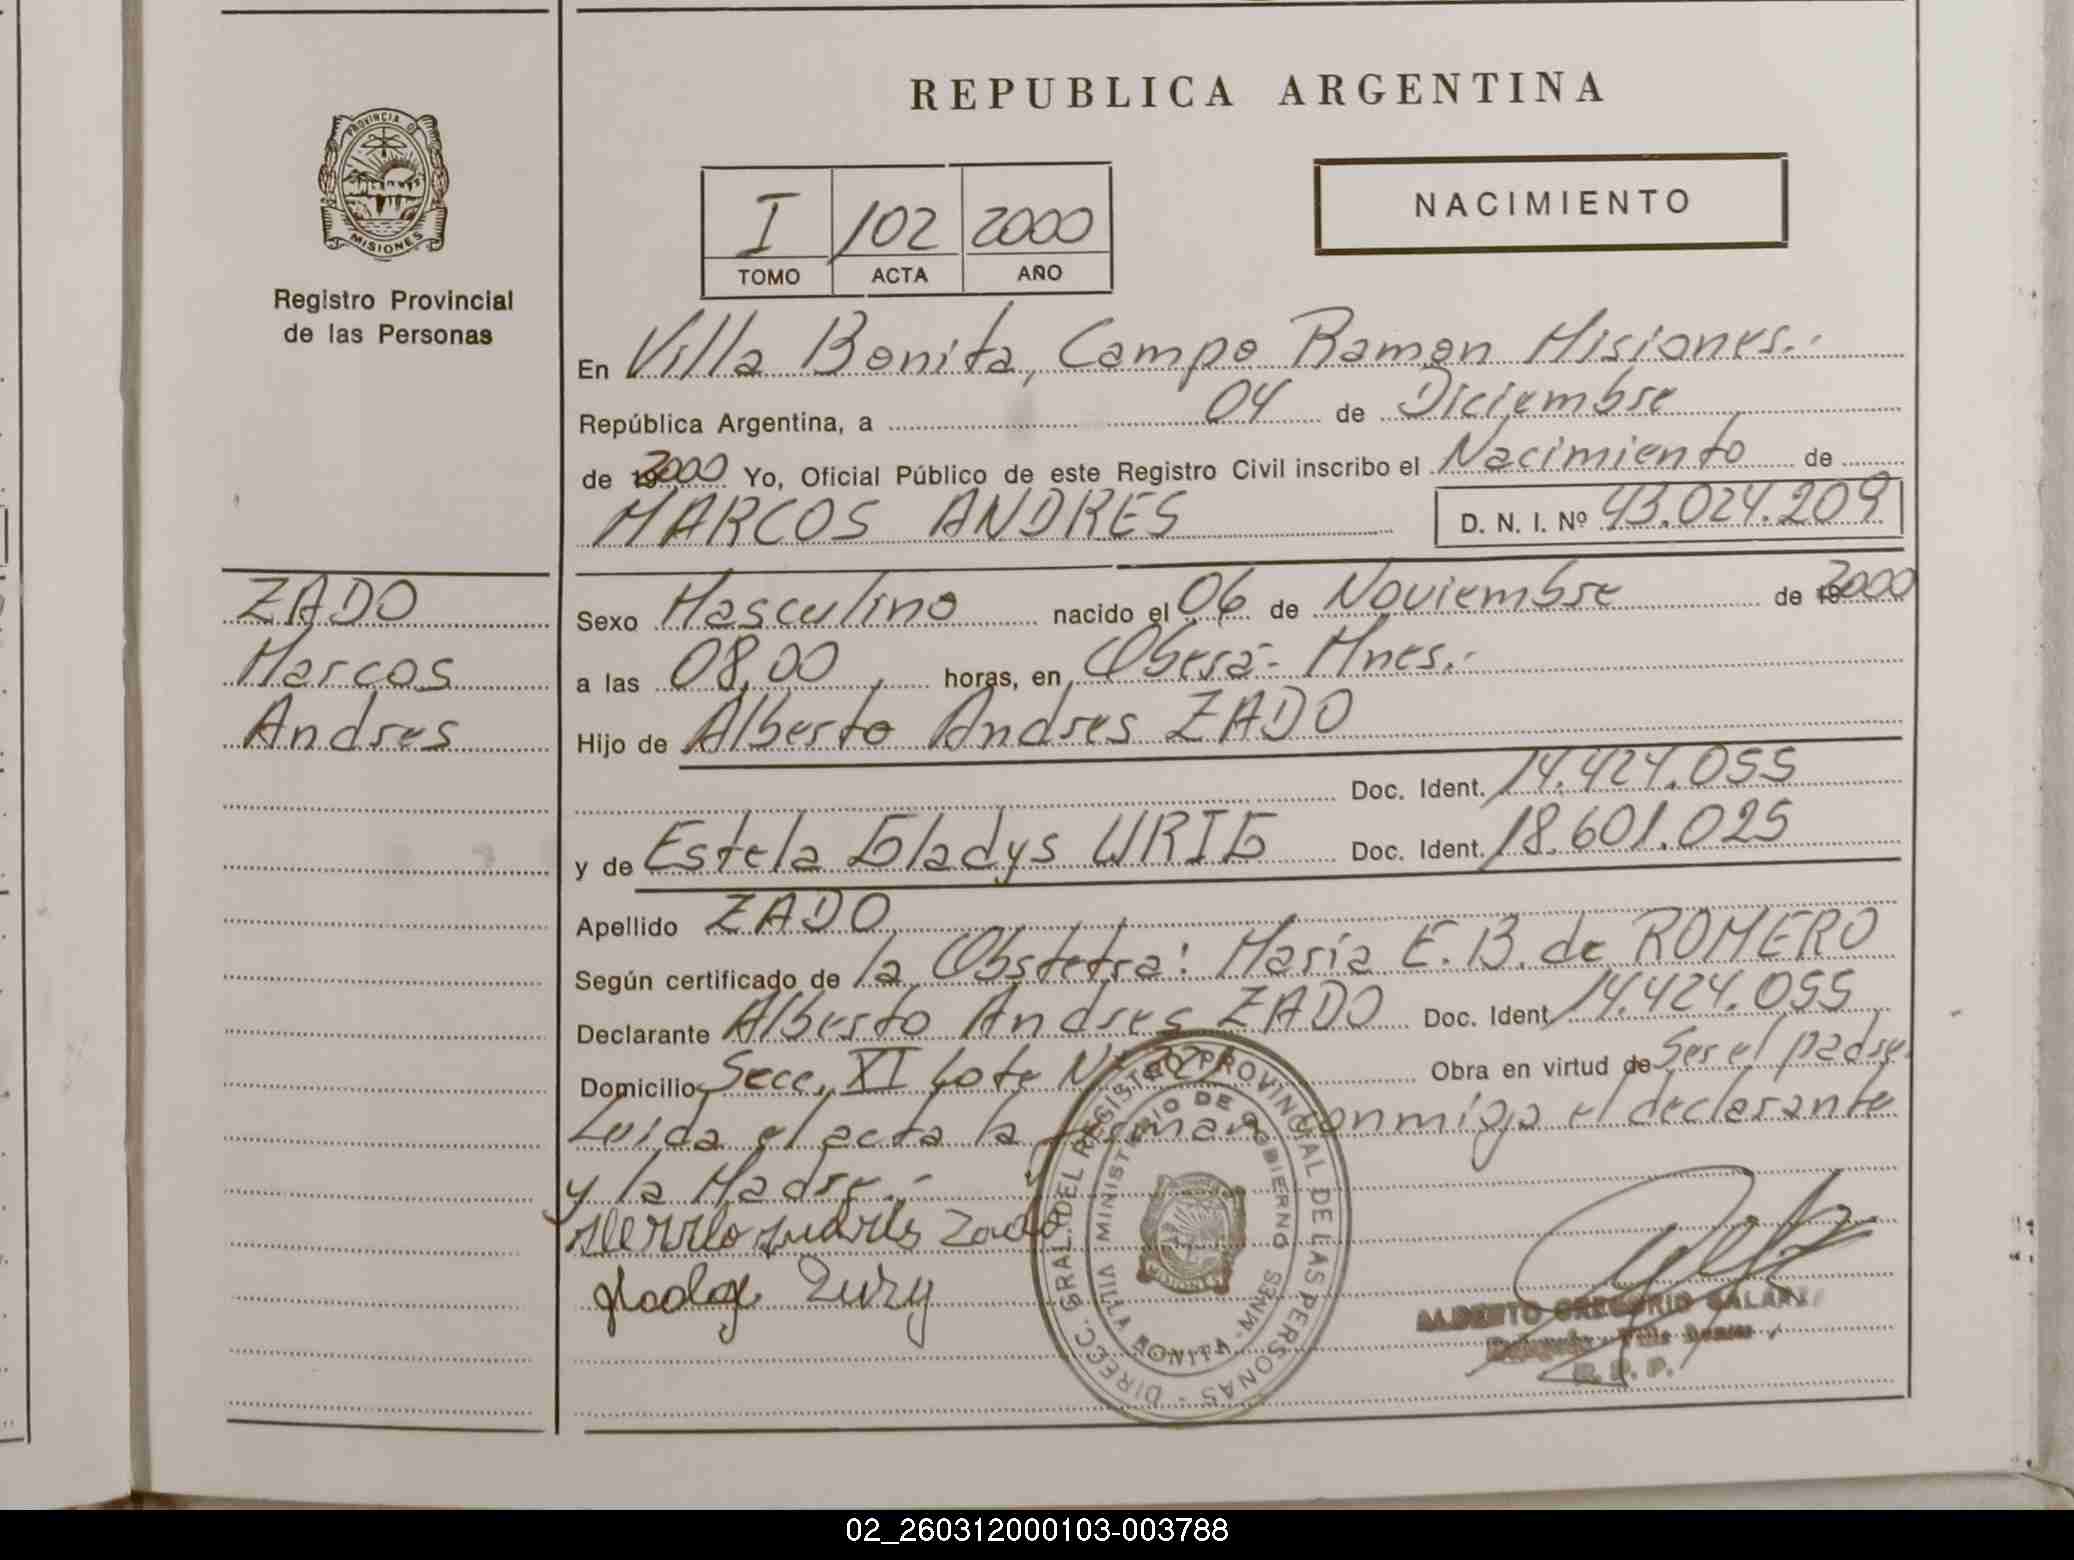 REPUBLICA ARGENTINA
PROVINCIA DE
MISIONES
Registro Provincial
de las Personas
I 102 2000
TOMO ACTA AÑO
NACIMIENTO
En Villa Bonita, Campo Ramon Misiones.-
República Argentina, a 04 de Diciembre
de 2000 Yo, Oficial Público de este Registro Civil inscribo el Nacimiento de
MARCOS ANDRES D. N. I. Nº 43.024.209
ZADO
Marcos
Andres
Sexo Masculino nacido el 06 de Noviembre de 2000
a las 08,00 horas, en Oberá- Mnes.-
Hijo de Alberto Andres ZADO
Doc. Ident. 14.424.055
y de Estela Gladys URIG Doc. Ident. 18.601.025
Apellido ZADO
Según certificado de la Obstetra: María E. B. de ROMERO
Declarante Alberto Andres ZADO Doc. Ident. 14.424.055
Domicilio Secc. XI Lote Nº Obra en virtud de Ser el padre
Leida el acta la firman conmigo el declarante
y la Madre.-
Zado
DIRECC. GRAL. DEL REGISTRO PROVINCIAL DE LAS PERSONAS
MINISTERIO DE GOBIERNO
VILLA BONITA - MNES
ALBERTO GREGORIO
Delegado Villa Bonita
R. P. P.
02_260312000103-003788